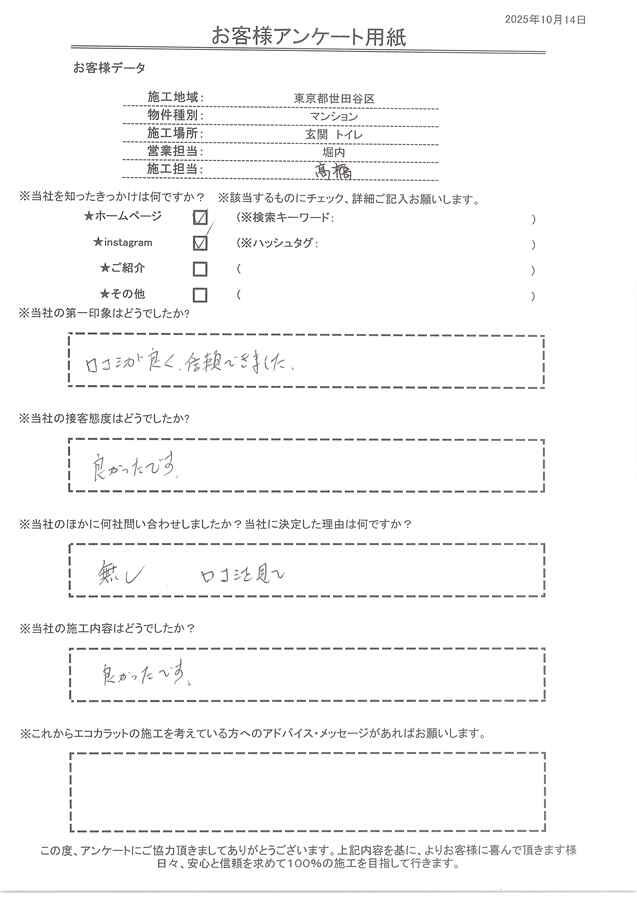 2025年10月14日
お客様アンケート用紙
お客様データ
施工地域: 東京都世田谷区
物件種別: マンション
施工場所: 玄関 トイレ
営業担当: 堀内
施工担当: 髙橋
※当社を知ったきっかけは何ですか? ※該当するものにチェック、詳細ご記入お願いします。
★ホームページ ☑ (※検索キーワード: )
★instagram ☑ (※ハッシュタグ: )
★ご紹介 □ ( )
★その他 □ ( )
※当社の第一印象はどうでしたか?
口コミが良く、信頼できました。
※当社の接客態度はどうでしたか?
良かったです。
※当社のほかに何社問い合わせしましたか?当社に決定した理由は何ですか?
無し 口コミを見て
※当社の施工内容はどうでしたか?
良かったです。
※これからエコカラットの施工を考えている方へのアドバイス・メッセージがあればお願いします。
この度、アンケートにご協力頂きましてありがとうございます。上記内容を基に、よりお客様に喜んで頂きます様
日々、安心と信頼を求めて100%の施工を目指して行きます。